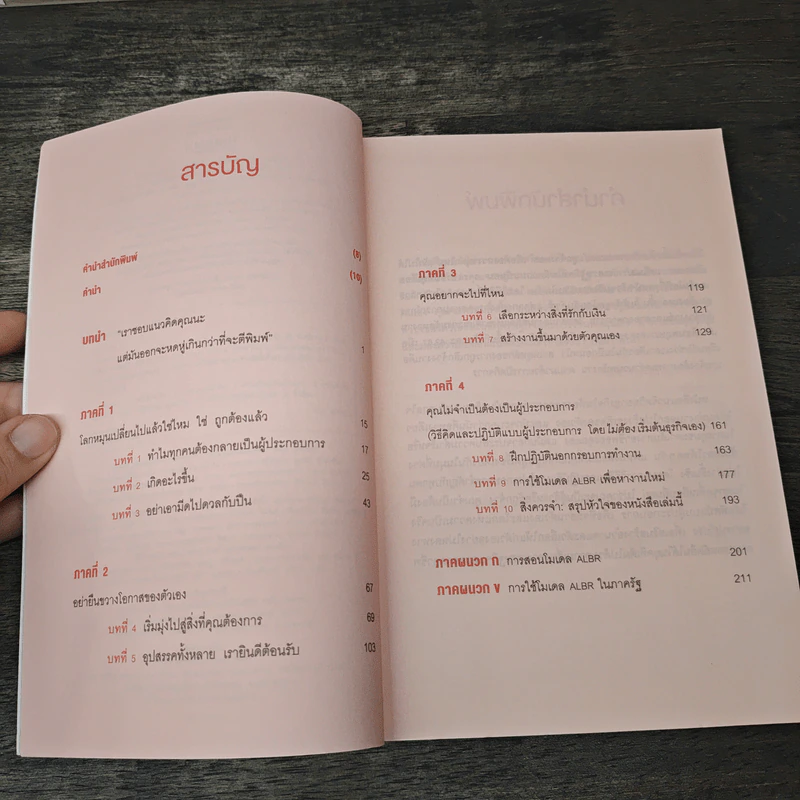 สารบัญ
คำนำสำนักพิมพ์ (8)
คำนำ (10)
บทนำ "เราชอบแนวคิดคุณนะ
แต่มันออกจะหดหู่เกินกว่าที่จะตีพิมพ์" 1
ภาคที่ 1
โลกหมุนเปลี่ยนไปแล้วใช่ไหม ใช่ ถูกต้องแล้ว 15
บทที่ 1 ทำไมทุกคนต้องกลายเป็นผู้ประกอบการ 17
บทที่ 2 เกิดอะไรขึ้น 25
บทที่ 3 อย่าเอามีดไปดวลกับปืน 43
ภาคที่ 2
อย่ายืนขวางโอกาสของตัวเอง 67
บทที่ 4 เริ่มมุ่งไปสู่สิ่งที่คุณต้องการ 69
บทที่ 5 อุปสรรคทั้งหลาย เรายินดีต้อนรับ 103
คำนำสำนักพิมพ์
ภาคที่ 3
คุณอยากจะไปที่ไหน 119
บทที่ 6 เลือกระหว่างสิ่งที่รักกับเงิน 121
บทที่ 7 สร้างงานขึ้นมาด้วยตัวคุณเอง 129
ภาคที่ 4
คุณไม่จำเป็นต้องเป็นผู้ประกอบการ
(วิธีคิดและปฏิบัติแบบผู้ประกอบการ โดยไม่ต้องเริ่มต้นธุรกิจเอง) 161
บทที่ 8 ฝึกปฏิบัตินอกกรอบการทำงาน 163
บทที่ 9 การใช้โมเดล ALBR เพื่อหางานใหม่ 177
บทที่ 10 สิ่งควรจำ: สรุปหัวใจของหนังสือเล่มนี้ 193
ภาคผนวก ก การสอนโมเดล ALBR 201
ภาคผนวก ข การใช้โมเดล ALBR ในภาครัฐ 211